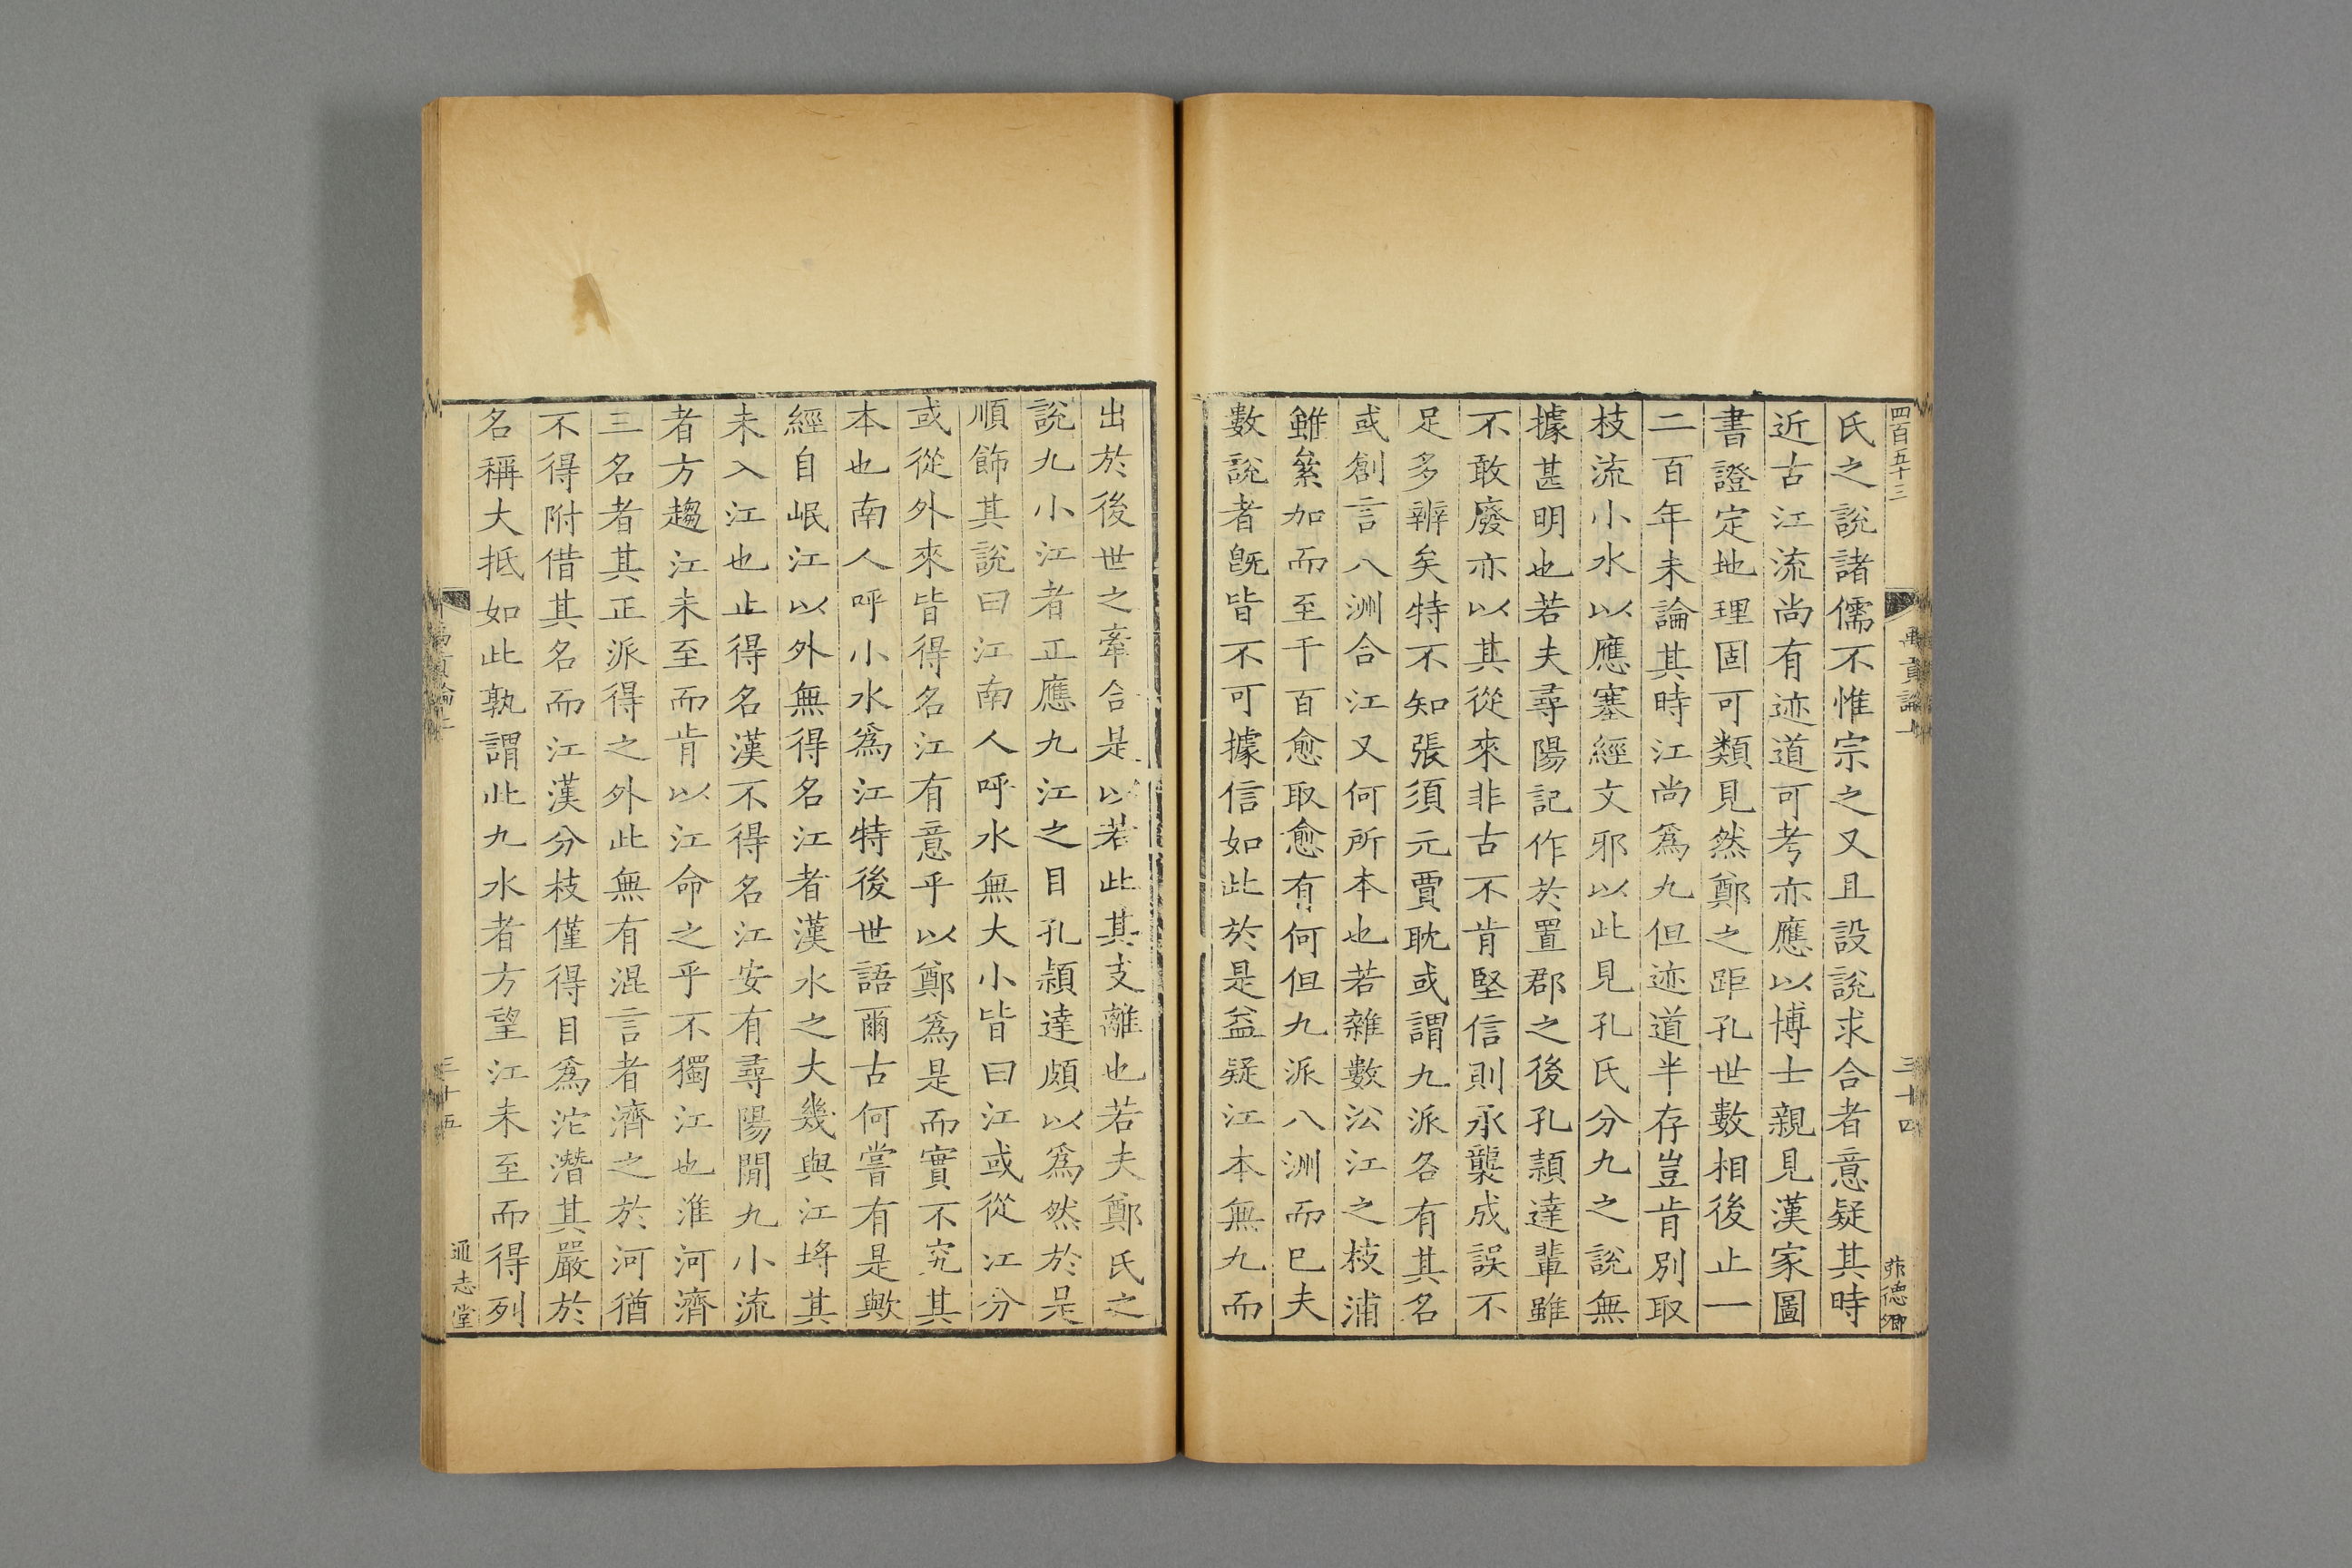 四百五十三
禹貢論上
三十四
氏之說諸儒不惟宗之又且設說求合者意疑其時
近古江流尚有迹道可考亦應以博士親見漢家圖
書證定地理固可類見然鄭之距孔世數相後止一
二百年未論其時江尚爲九但迹道半存豈肯別取
枝流小水以應塞經文邪以此見孔氏分九之說無
據甚明也若夫尋陽記作於置郡之後孔穎達輩雖
不敢廢亦以其從來非古不肯堅信則承襲成誤不
足多辨矣特不知張須元賈耽或謂九派各有其名
或創言八洲合江又何所本也若雜數㳂江之枝浦
雖絫加而至千百愈取愈有何但九派八洲而已夫
數說者旣皆不可據信如此於是益疑江本無九而
出於後世之牽合是以若此其支離也若夫鄭氏之
說九小江者正應九江之目孔穎達頗以爲然於是
順飾其說曰江南人呼水無大小皆曰江或從江分
或從外來皆得名江有意乎以鄭爲是而實不究其
本也南人呼小水爲江特後世語爾古何嘗有是歟
經自岷江以外無得名江者漢水之大幾與江埒其
未入江也止得名漢不得名江安有尋陽閒九小流
者方趨江未至而肯以江命之乎不獨江也淮河濟
三名者其正派得之外此無有混言者濟之於河猶
不得附借其名而江漢分枝僅得目爲沱潛其嚴於
名稱大抵如此孰謂此九水者方望江未至而得列
禹貢論上
三十五
通志堂